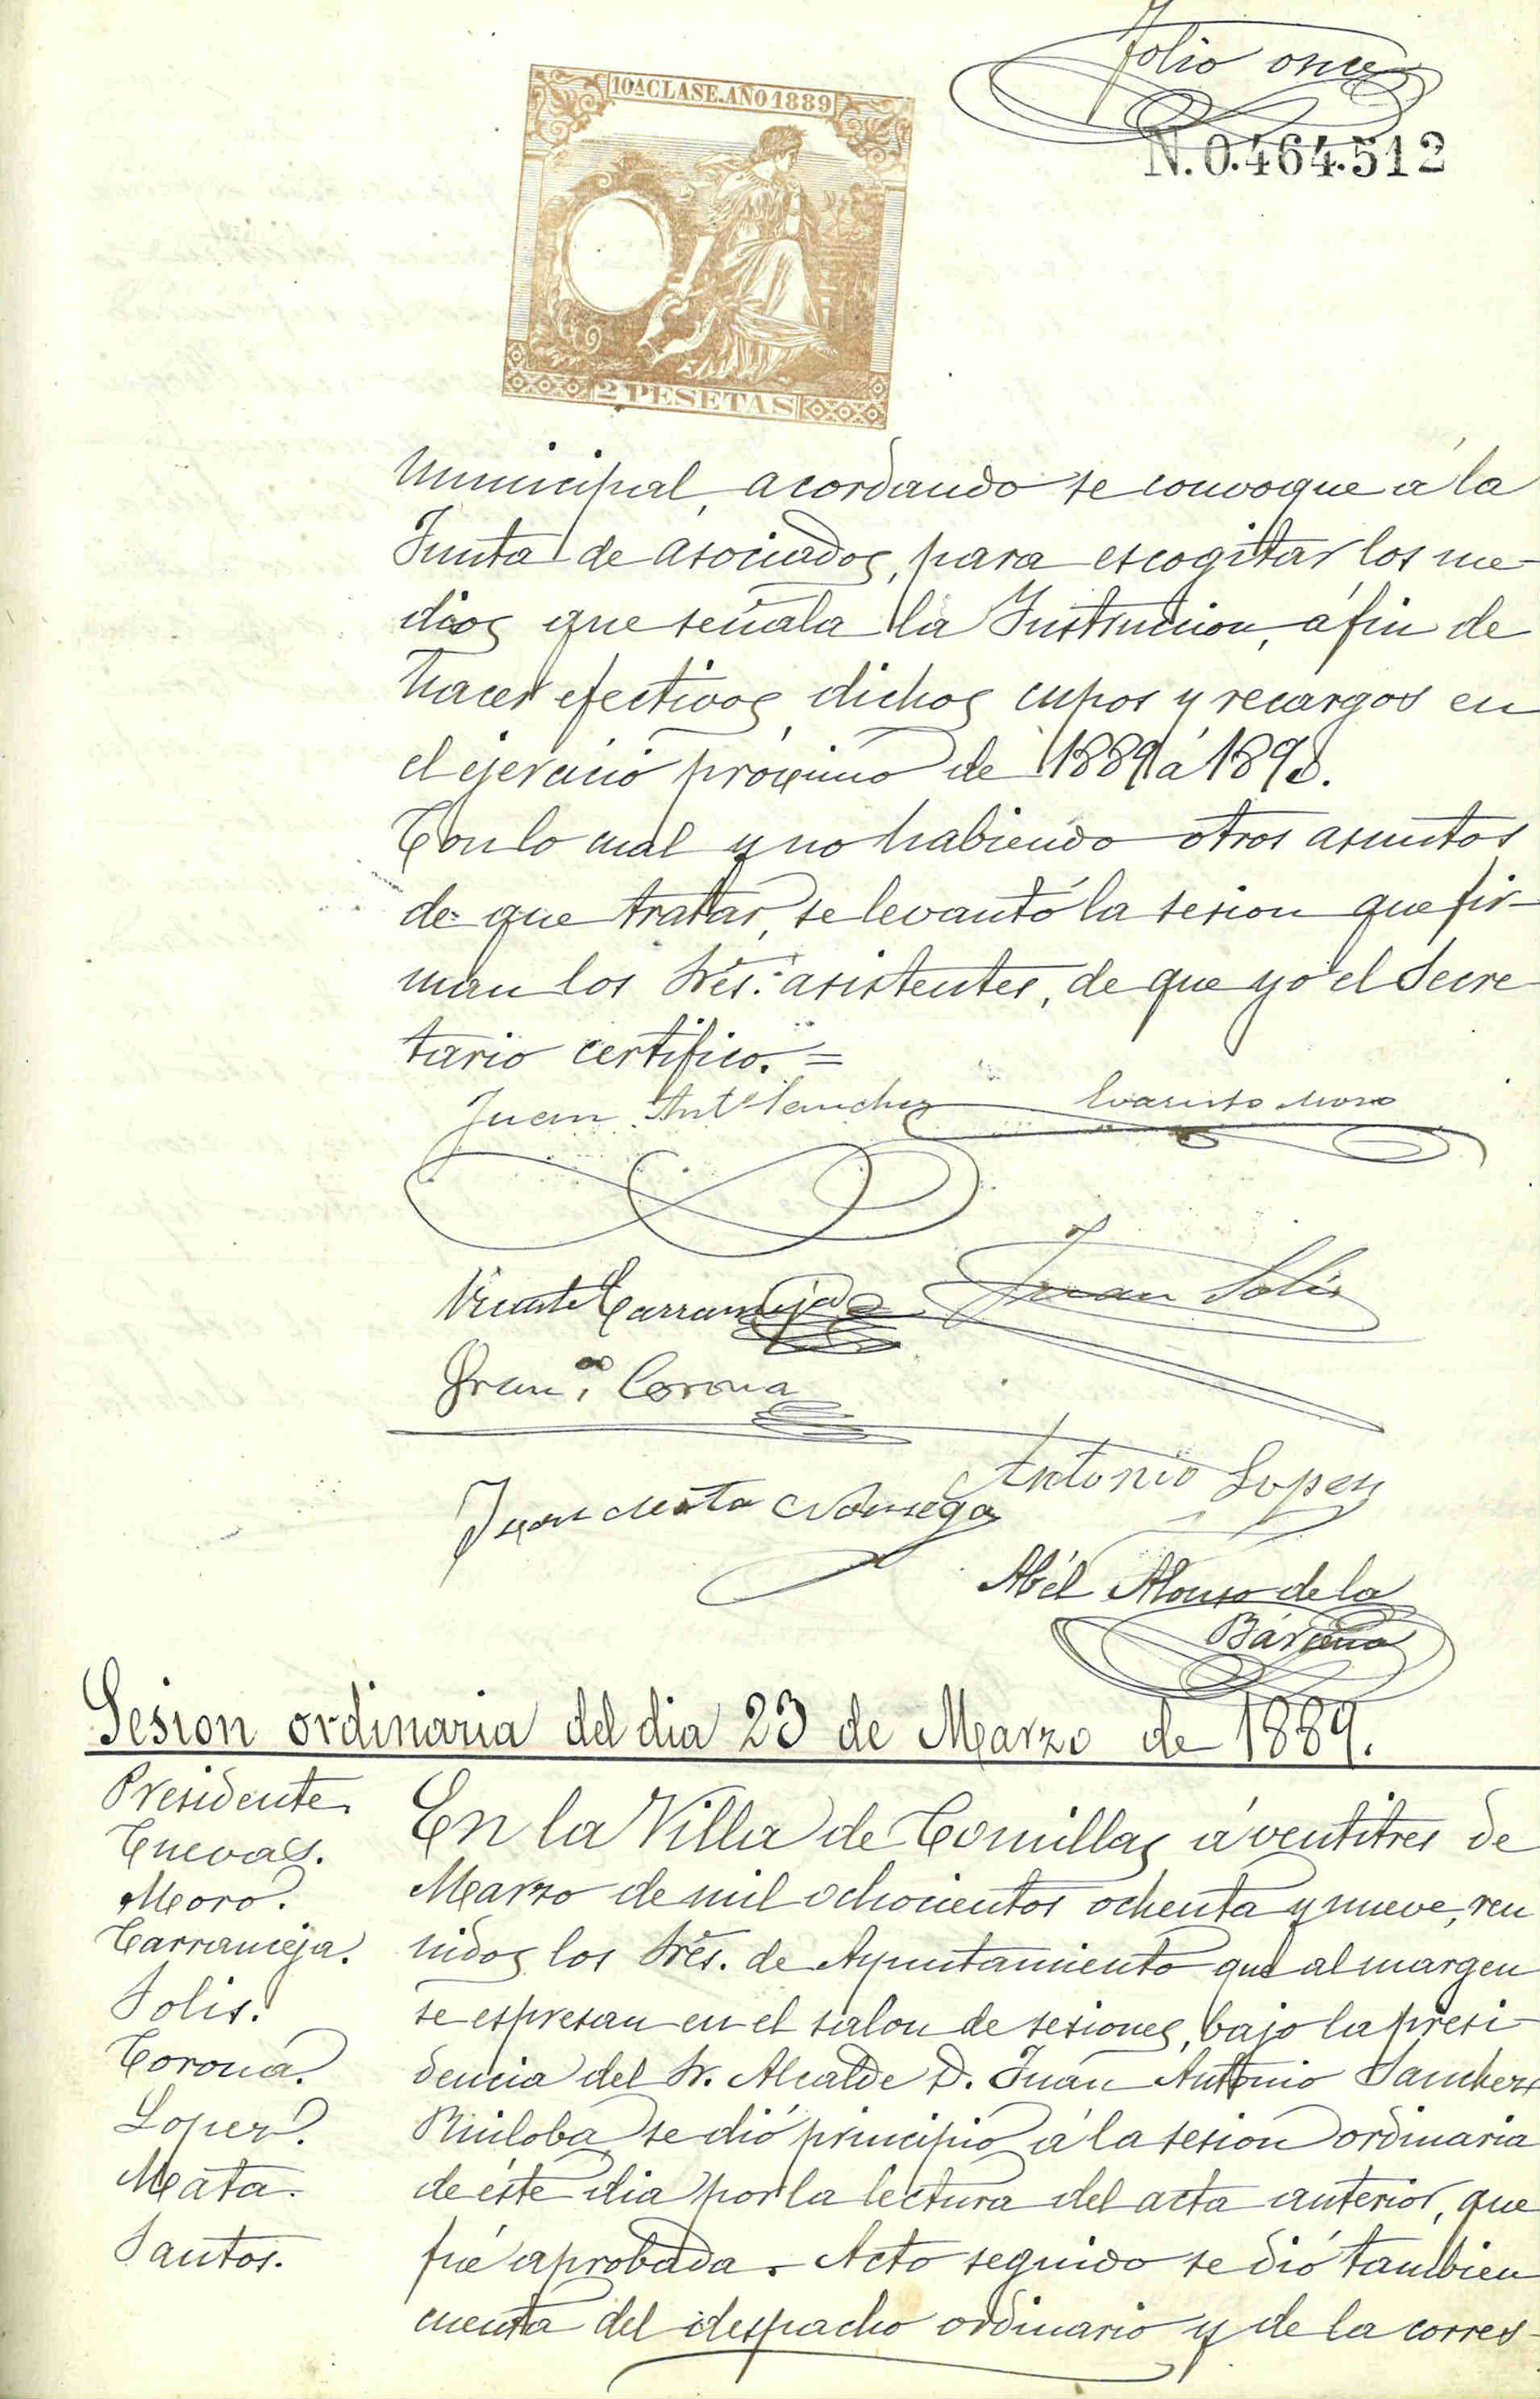 Folio once
N.0.464.512
10ª CLASE. AÑO 1889
2 PESETAS
Municipal, acordando se convoque á la
Junta de asociados, para escogitar los me-
dios que señala la Instruccion, á fin de
hacer efectivos dichos cupos y recargos en
el ejercicio próximo de 1889 á 1890.
Con lo cual y no habiendo otros asuntos
de que tratar, se levantó la sesion que fir-
man los Sres. asistentes, de que yo el Secre-
tario certifico. =
Juan Antº Sanchez
Evaristo Moro
Vicente Carranceja
Juan Solis
Francº Corona
Antonio Lopez
Juan Mata Noriega
Abél Alonso de la
Bárcena
Sesion ordinaria del dia 23 de Marzo de 1889.
Presidente.
Cuevas.
Moro.
Carranceja.
Solis.
Corona.
Lopez.
Mata.
Santos.
En la Villa de Comillas á ventitres de
Marzo de mil ochocientos ochenta y nueve, reu
nidos los Sres. de Ayuntamiento que al margen
se espresan en el salon de sesiones, bajo la presi-
dencia del Sr. Alcalde D. Juan Antonio Sanchez
Ruiloba se dió principio á la sesion ordinaria
de éste dia por la lectura del acta anterior, que
fué aprobada. Acto seguido se dió tambien
cuenta del despacho ordinario y de la corres-